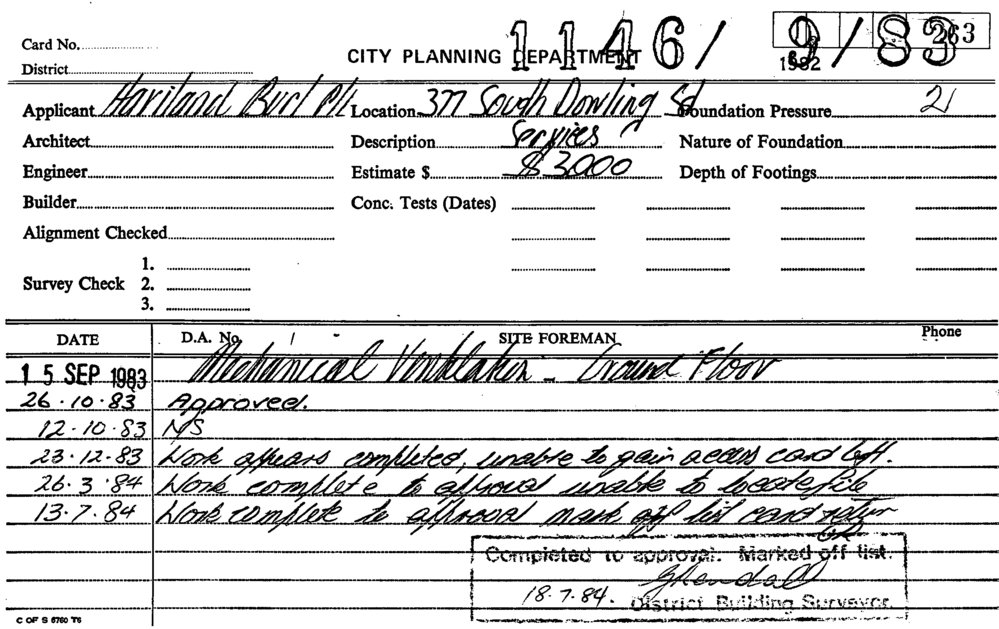 Card No.
1146/ 9/83
263
1982
CITY PLANNING DEPARTMENT
District
Applicant Haviland Burl P/L Location 377 South Dowling St Foundation Pressure 21
Architect Description Services Nature of Foundation
Engineer Estimate $ $3000 Depth of Footings
Builder Conc. Tests (Dates)
Alignment Checked
1.
Survey Check 2.
3.
DATE D.A. No. SITE FOREMAN Phone
15 SEP 1983 Mechanical Ventilation - Ground Floor
26.10.83 Approved.
12.10.83 NS
23.12.83 Work appears completed, unable to gain access card left.
26.3.84 Work complete to approval unable to locate file
13.7.84 Work complete to approval mark off list card return
Completed to approval. Marked off list.
18.7.84. District Building Surveyor.
C OF S 6760 T6